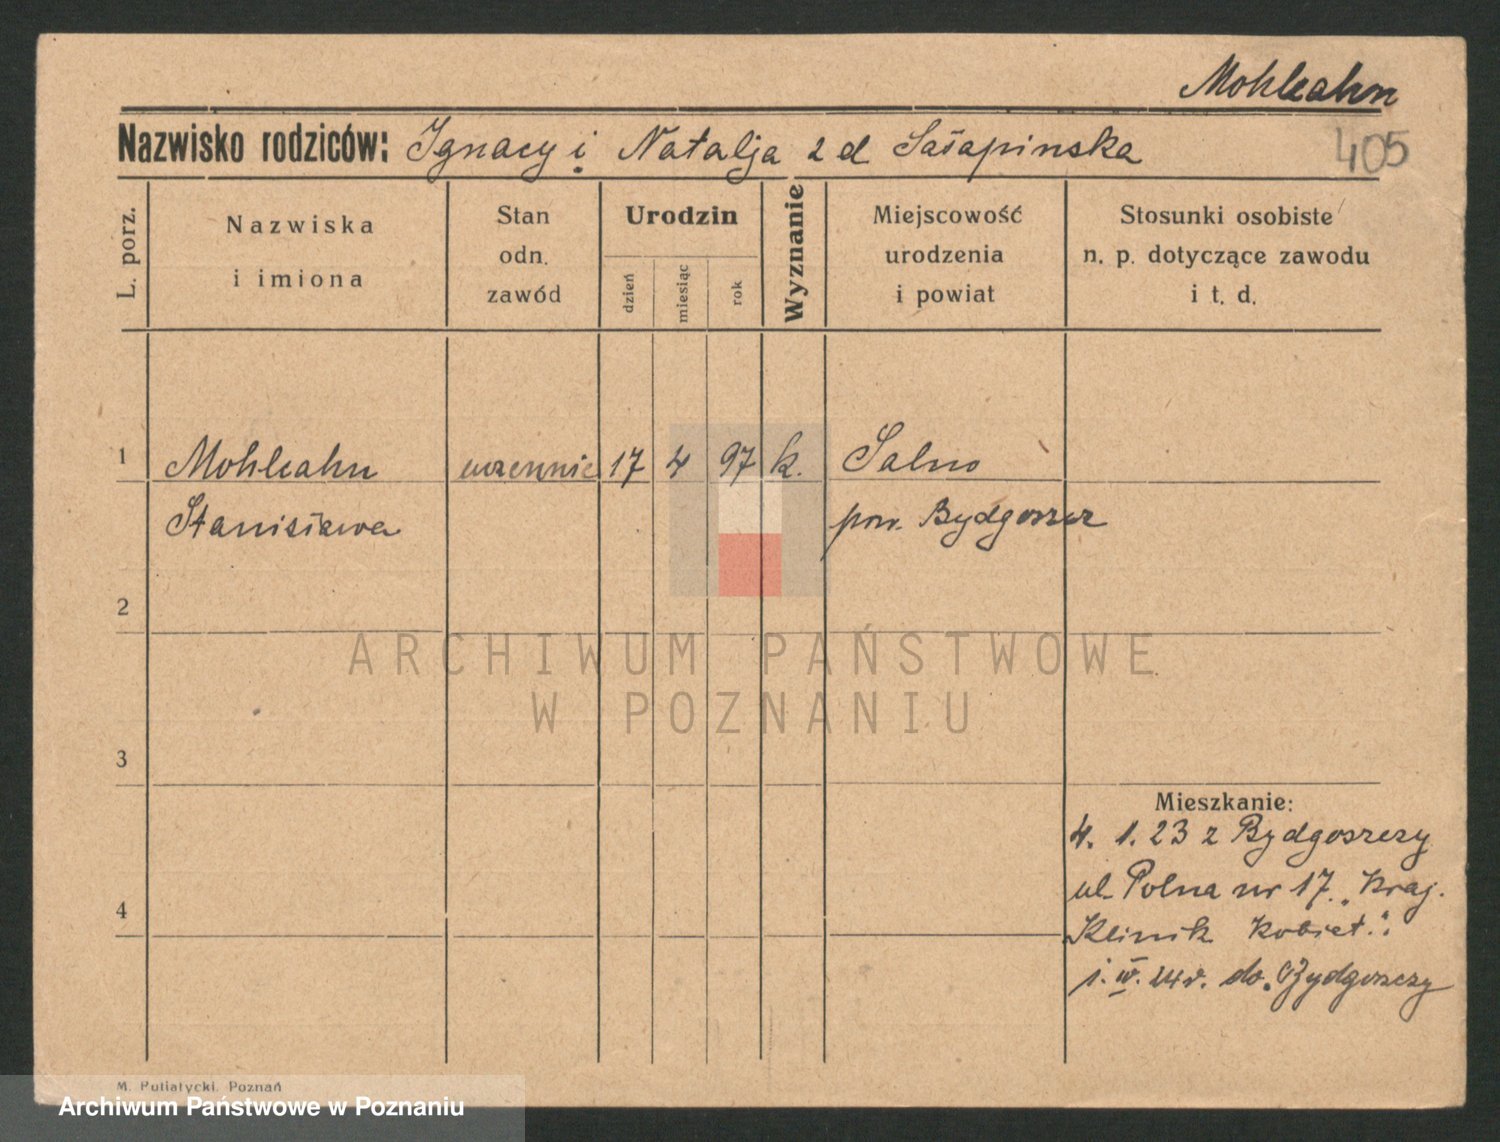 Mohleahn
405
Nazwisko rodziców: Ignacy i Natalja z d Sałapinska
L. porz.
Nazwiska
i imiona
Stan
odn.
zawód
Urodzin
dzień
miesiąc
rok
Wyznanie
Miejscowość
urodzenia
i powiat
Stosunki osobiste
n. p. dotyczące zawodu
i t. d.
1 Mohleahn uczennic 17 4 97 k. Salno
Stanisława pow. Bydgoszcz
2
ARCHIWUM PAŃSTWOWE
W POZNANIU
3
Mieszkanie:
4. 1. 23 z Bydgoszczy
ul. Polna nr 17. "Kraj.
4
Klinik Kobiet."
1. IV. 24 r. do Bydgoszczy
M. Putiatycki. Poznań
Archiwum Państwowe w Poznaniu